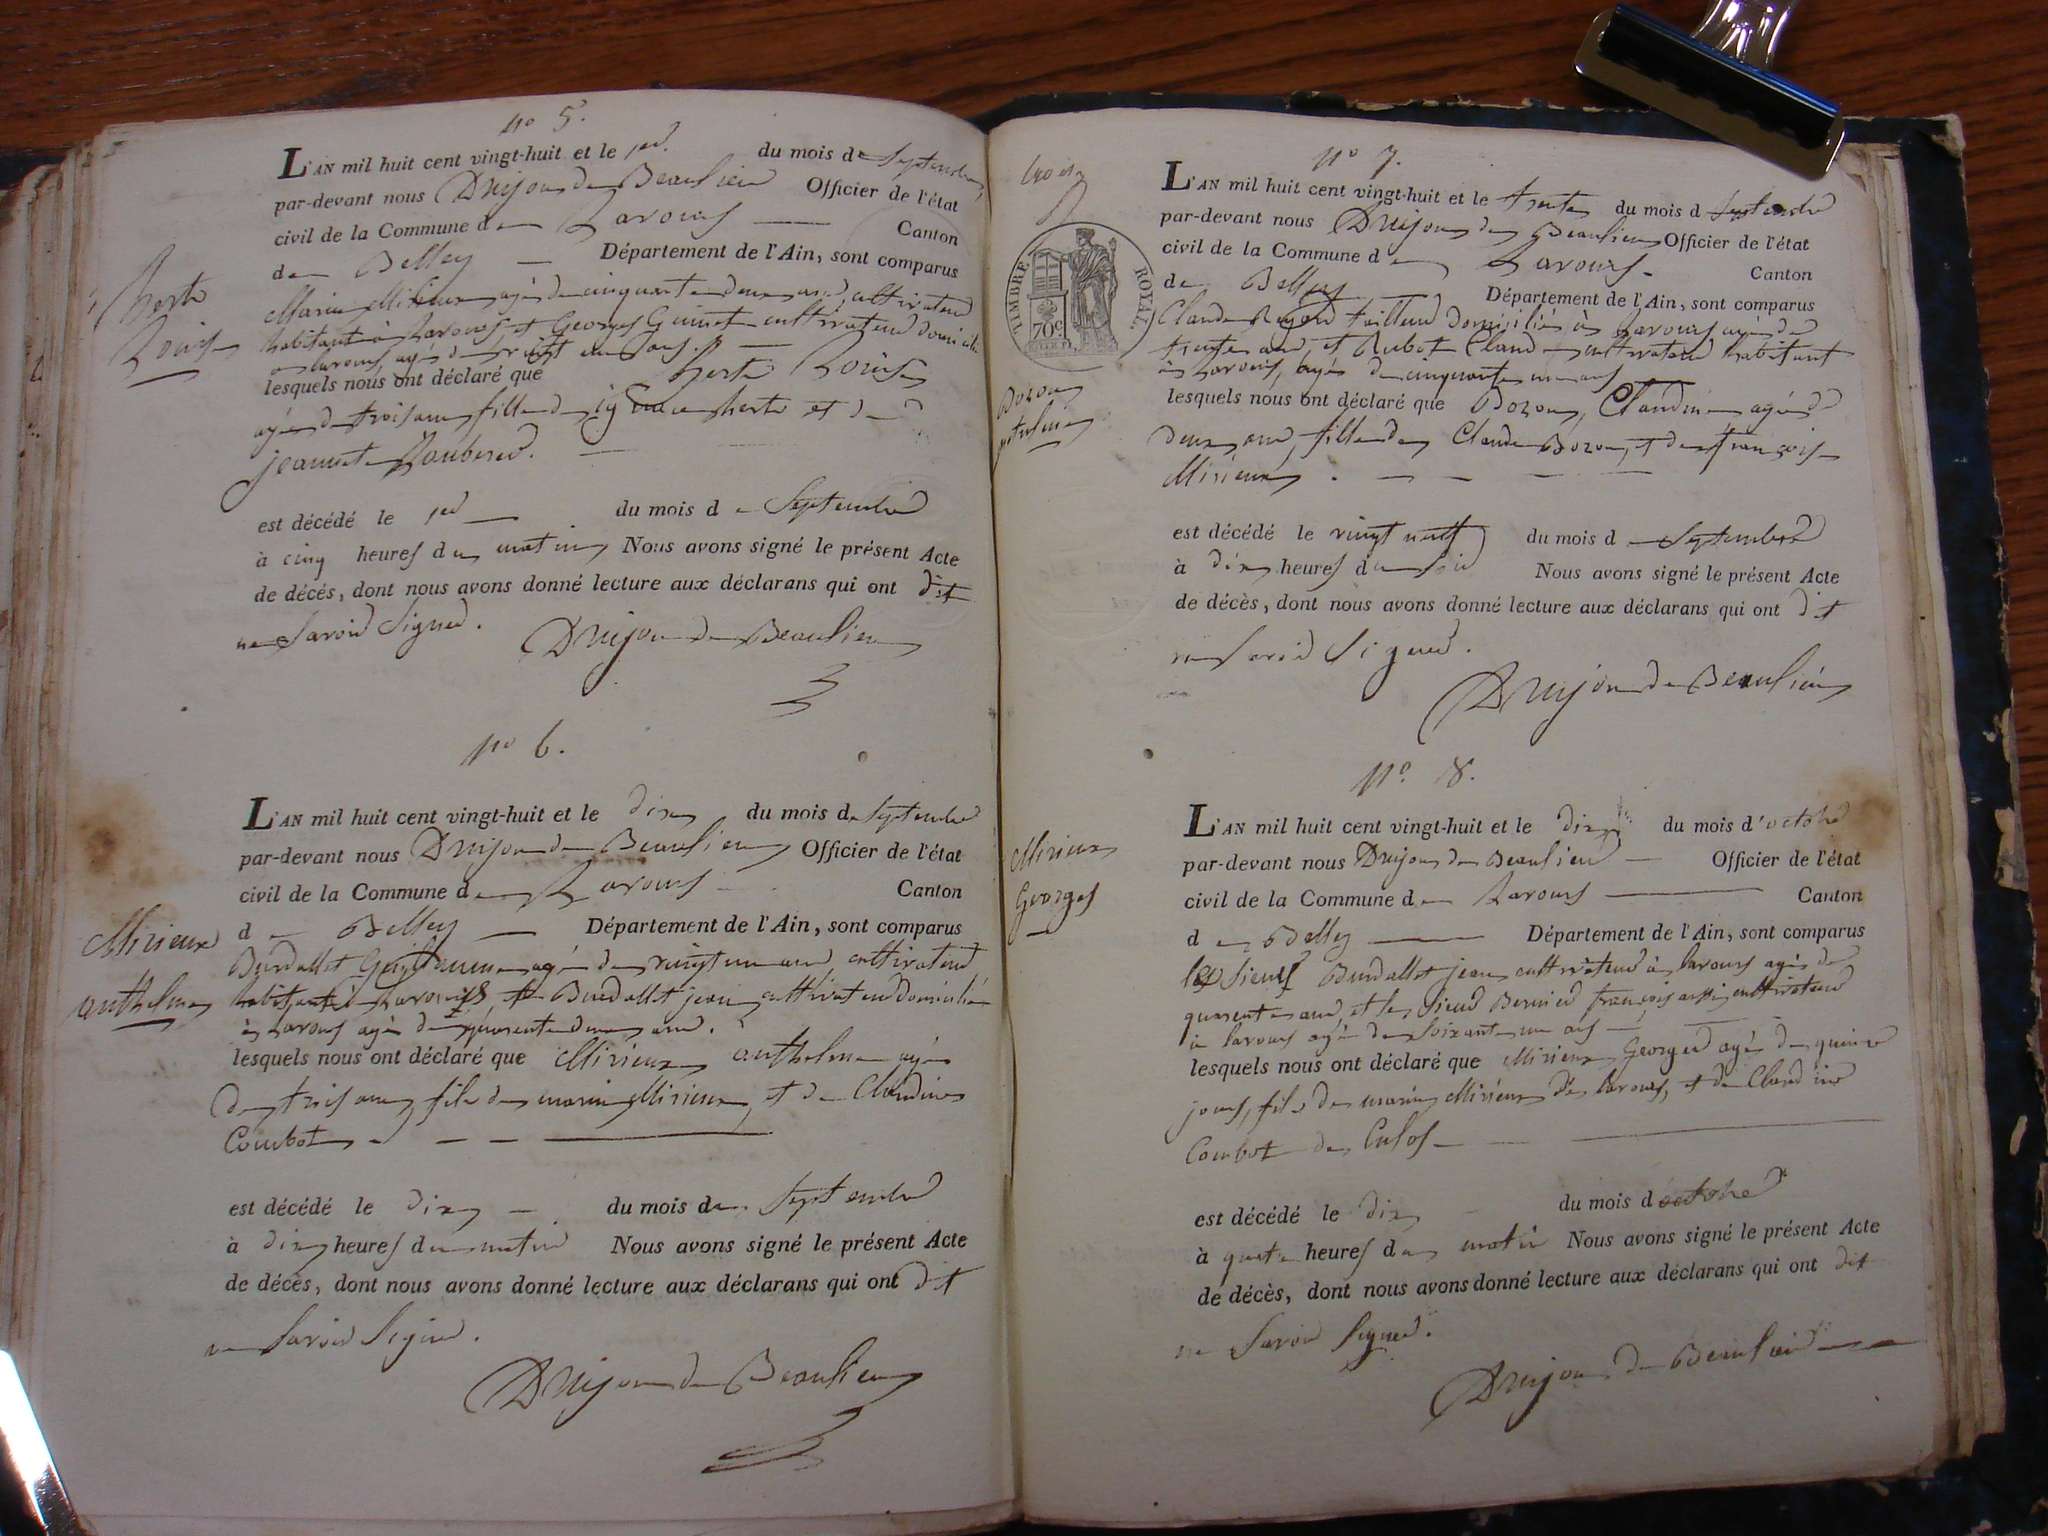 nº 5.
L'AN mil huit cent vingt-huit et le 1er. du mois de Septembre
par-devant nous Drujon de Beaulieu Officier de l'état
civil de la Commune de Lavours Canton
de Belley Département de l'Ain, sont comparus
Marin Mirieux agé de cinquante deux ans, cultivateur
habitant à Lavours, et Georges Gunet cultivateur domicilié
à Lavours, agé de vingt un ans.
lesquels nous ont déclaré que Louise
agée de trois ans fille de et de
jeannette
est décédé le 1er du mois de Septembre
à cinq heures du matin Nous avons signé le présent Acte
de décés, dont nous avons donné lecture aux déclarans qui ont dit
ne Savoir Signer.
Drujon de Beaulieu
Louise
nº 6.
L'AN mil huit cent vingt-huit et le dix du mois de Septembre
par-devant nous Drujon de Beaulieu Officier de l'état
civil de la Commune de Lavours Canton
de Belley Département de l'Ain, sont comparus
Burdallet Guillaume agé de vingt un ans cultivateur
habitant à Lavours, et Burdallet jean cultivateur domicilié
à Lavours agé de quarante deux ans.
lesquels nous ont déclaré que Mirieux anthelme agé
de trois ans, fils de marin Mirieux, et de Claudine
Combot
est décédé le dix du mois de Septembre
à dix heures du matin Nous avons signé le présent Acte
de décès, dont nous avons donné lecture aux déclarans qui ont dit
ne Savoir Signer.
Drujon de Beaulieu
Mirieux
anthelme
trois
TIMBRE ROYAL
70c
nº 7.
L'AN mil huit cent vingt-huit et le trente du mois de Septembre
par-devant nous Drujon de Beaulieu Officier de l'état
civil de la Commune de Lavours Canton
de Belley Département de l'Ain, sont comparus
Claude tailleur domicilié à Lavours agé de
trente ans, et Rubot Claude cultivateur habitant
à Lavours, agé de cinquante un ans
lesquels nous ont déclaré que Bozon, Claudine agée de
deux ans, fille de Claude Bozon, et de françoise
Mirieux.
est décédé le vingt neuf du mois de Septembre
à dix heures du soir Nous avons signé le présent Acte
de décès, dont nous avons donné lecture aux déclarans qui ont dit
ne Savoir Signer.
Drujon de Beaulieu
Bozon
nº. 8.
L'AN mil huit cent vingt-huit et le dix du mois d'octobre
par-devant nous Drujon de Beaulieu Officier de l'état
civil de la Commune de Lavours Canton
de Belley Département de l'Ain, sont comparus
les Sieurs Burdallet jean cultivateur à lavours agé de
quarante ans, et le Sieur Bernier françois aussi cultivateur
à lavours agé de Soixante un ans
lesquels nous ont déclaré que Mirieux Georges agé de quinze
jours, fils de marin Mirieux de lavours, et de Claudine
Combot de Culos
est décédé le dix du mois d'octobre
à quatre heures du matin Nous avons signé le présent Acte
de décès, dont nous avons donné lecture aux déclarans qui ont dit
ne Savoir Signer.
Drujon de Beaulieu
Mirieux
Georges